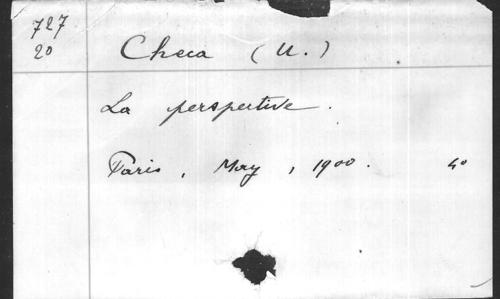 727
20
Checa (U.)
La perspective.
Paris, May, 1900. 4º